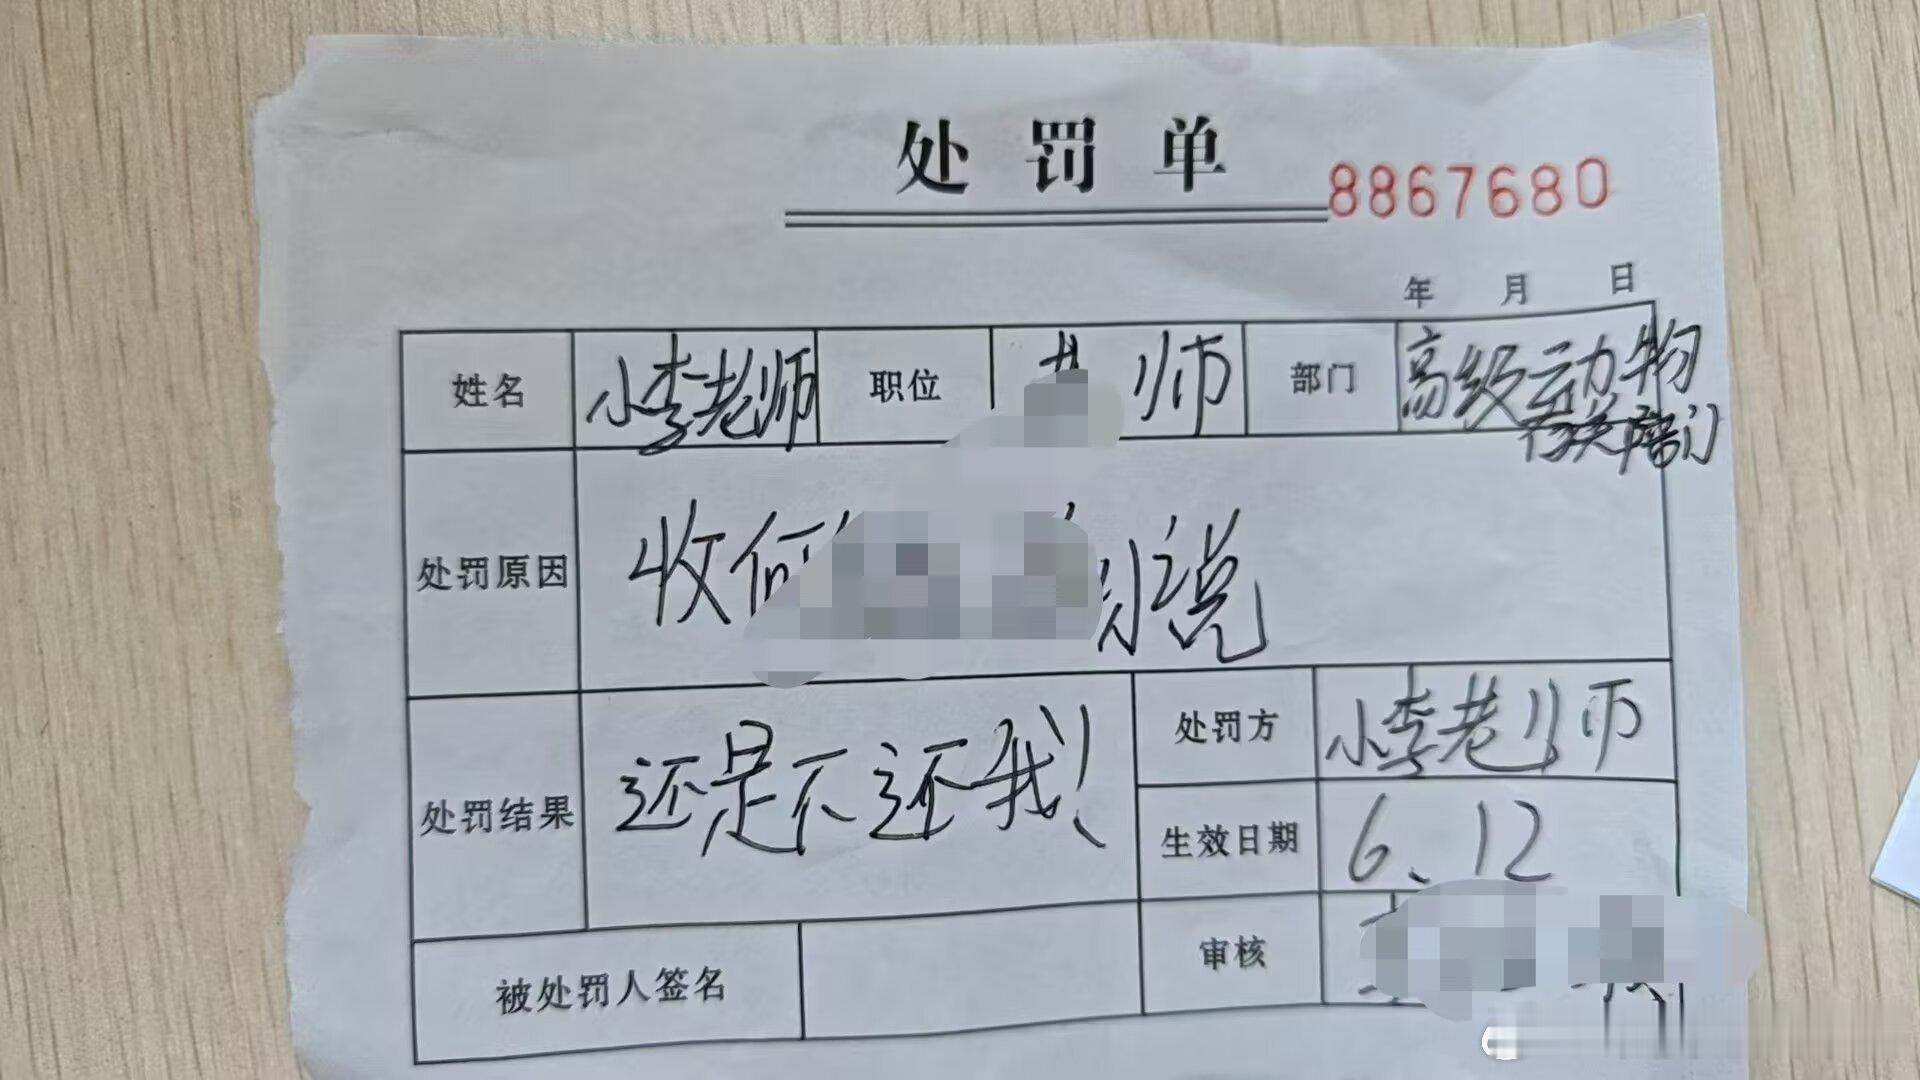 处罚单
8867680
年 月 日
姓名 小李老师 职位 师 部门 高级动物
有关部门
处罚原因 收何 小说
处罚结果 还是不还我！ 处罚方 小李老师
生效日期 6、12
被处罚人签名 审核